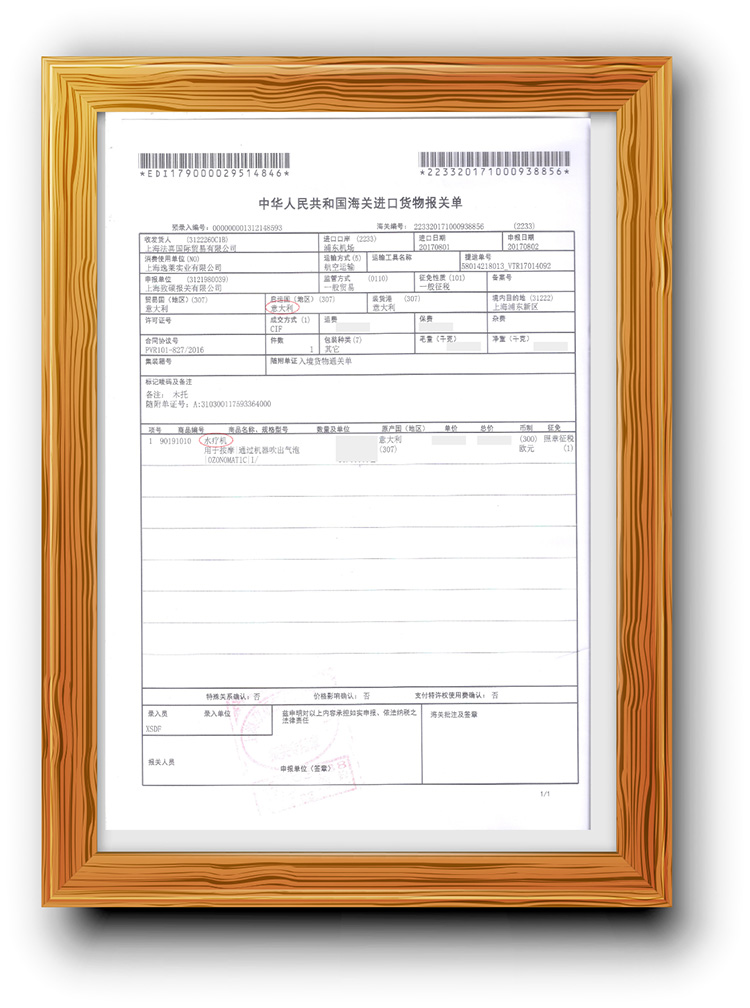 *EDI179000029514846*
*223320171000938856*
中华人民共和国海关进口货物报关单
预录入编号: 000000001312148593 海关编号: 223320171000938856 (2233)
收发货人 (3122260C1B) 进口口岸 (2233) 进口日期 申报日期
上海法莫国际贸易有限公司 浦东机场 20170801 20170802
消费使用单位 (NO) 运输方式 (5) 运输工具名称 提运单号
上海逸莱实业有限公司 航空运输 58014218013_VTR17014092
申报单位 (3121980039) 监管方式 (0110) 征免性质 (101) 备案号
上海致硕报关有限公司 一般贸易 一般征税
贸易国 (地区) (307) 启运国 (地区) (307) 装货港 (307) 境内目的地 (31222)
意大利 意大利 意大利 上海浦东新区
许可证号 成交方式 (1) 运费 保费 杂费
CIF
合同协议号 件数 包装种类 (7) 毛重 (千克) 净重 (千克)
PVR101-827/2016 1 其它
集装箱号 随附单证 入境货物通关单
标记唛码及备注
备注: 木托
随附单证号: A:310300117593364000
项号 商品编号 商品名称、规格型号 数量及单位 原产国 (地区) 单价 总价 币制 征免
1 90191010 水疗机 意大利 (300) 照章征税
用于按摩|通过机器吹出气泡 (307) 欧元 (1)
|OZONOMATIC|1/
特殊关系确认: 否 价格影响确认: 否 支付特许权使用费确认: 否
录入员 录入单位 兹申明对以上内容承担如实申报、依法纳税之 海关批注及签章
法律责任
XSDF
报关人员 申报单位 (签章)
1/1